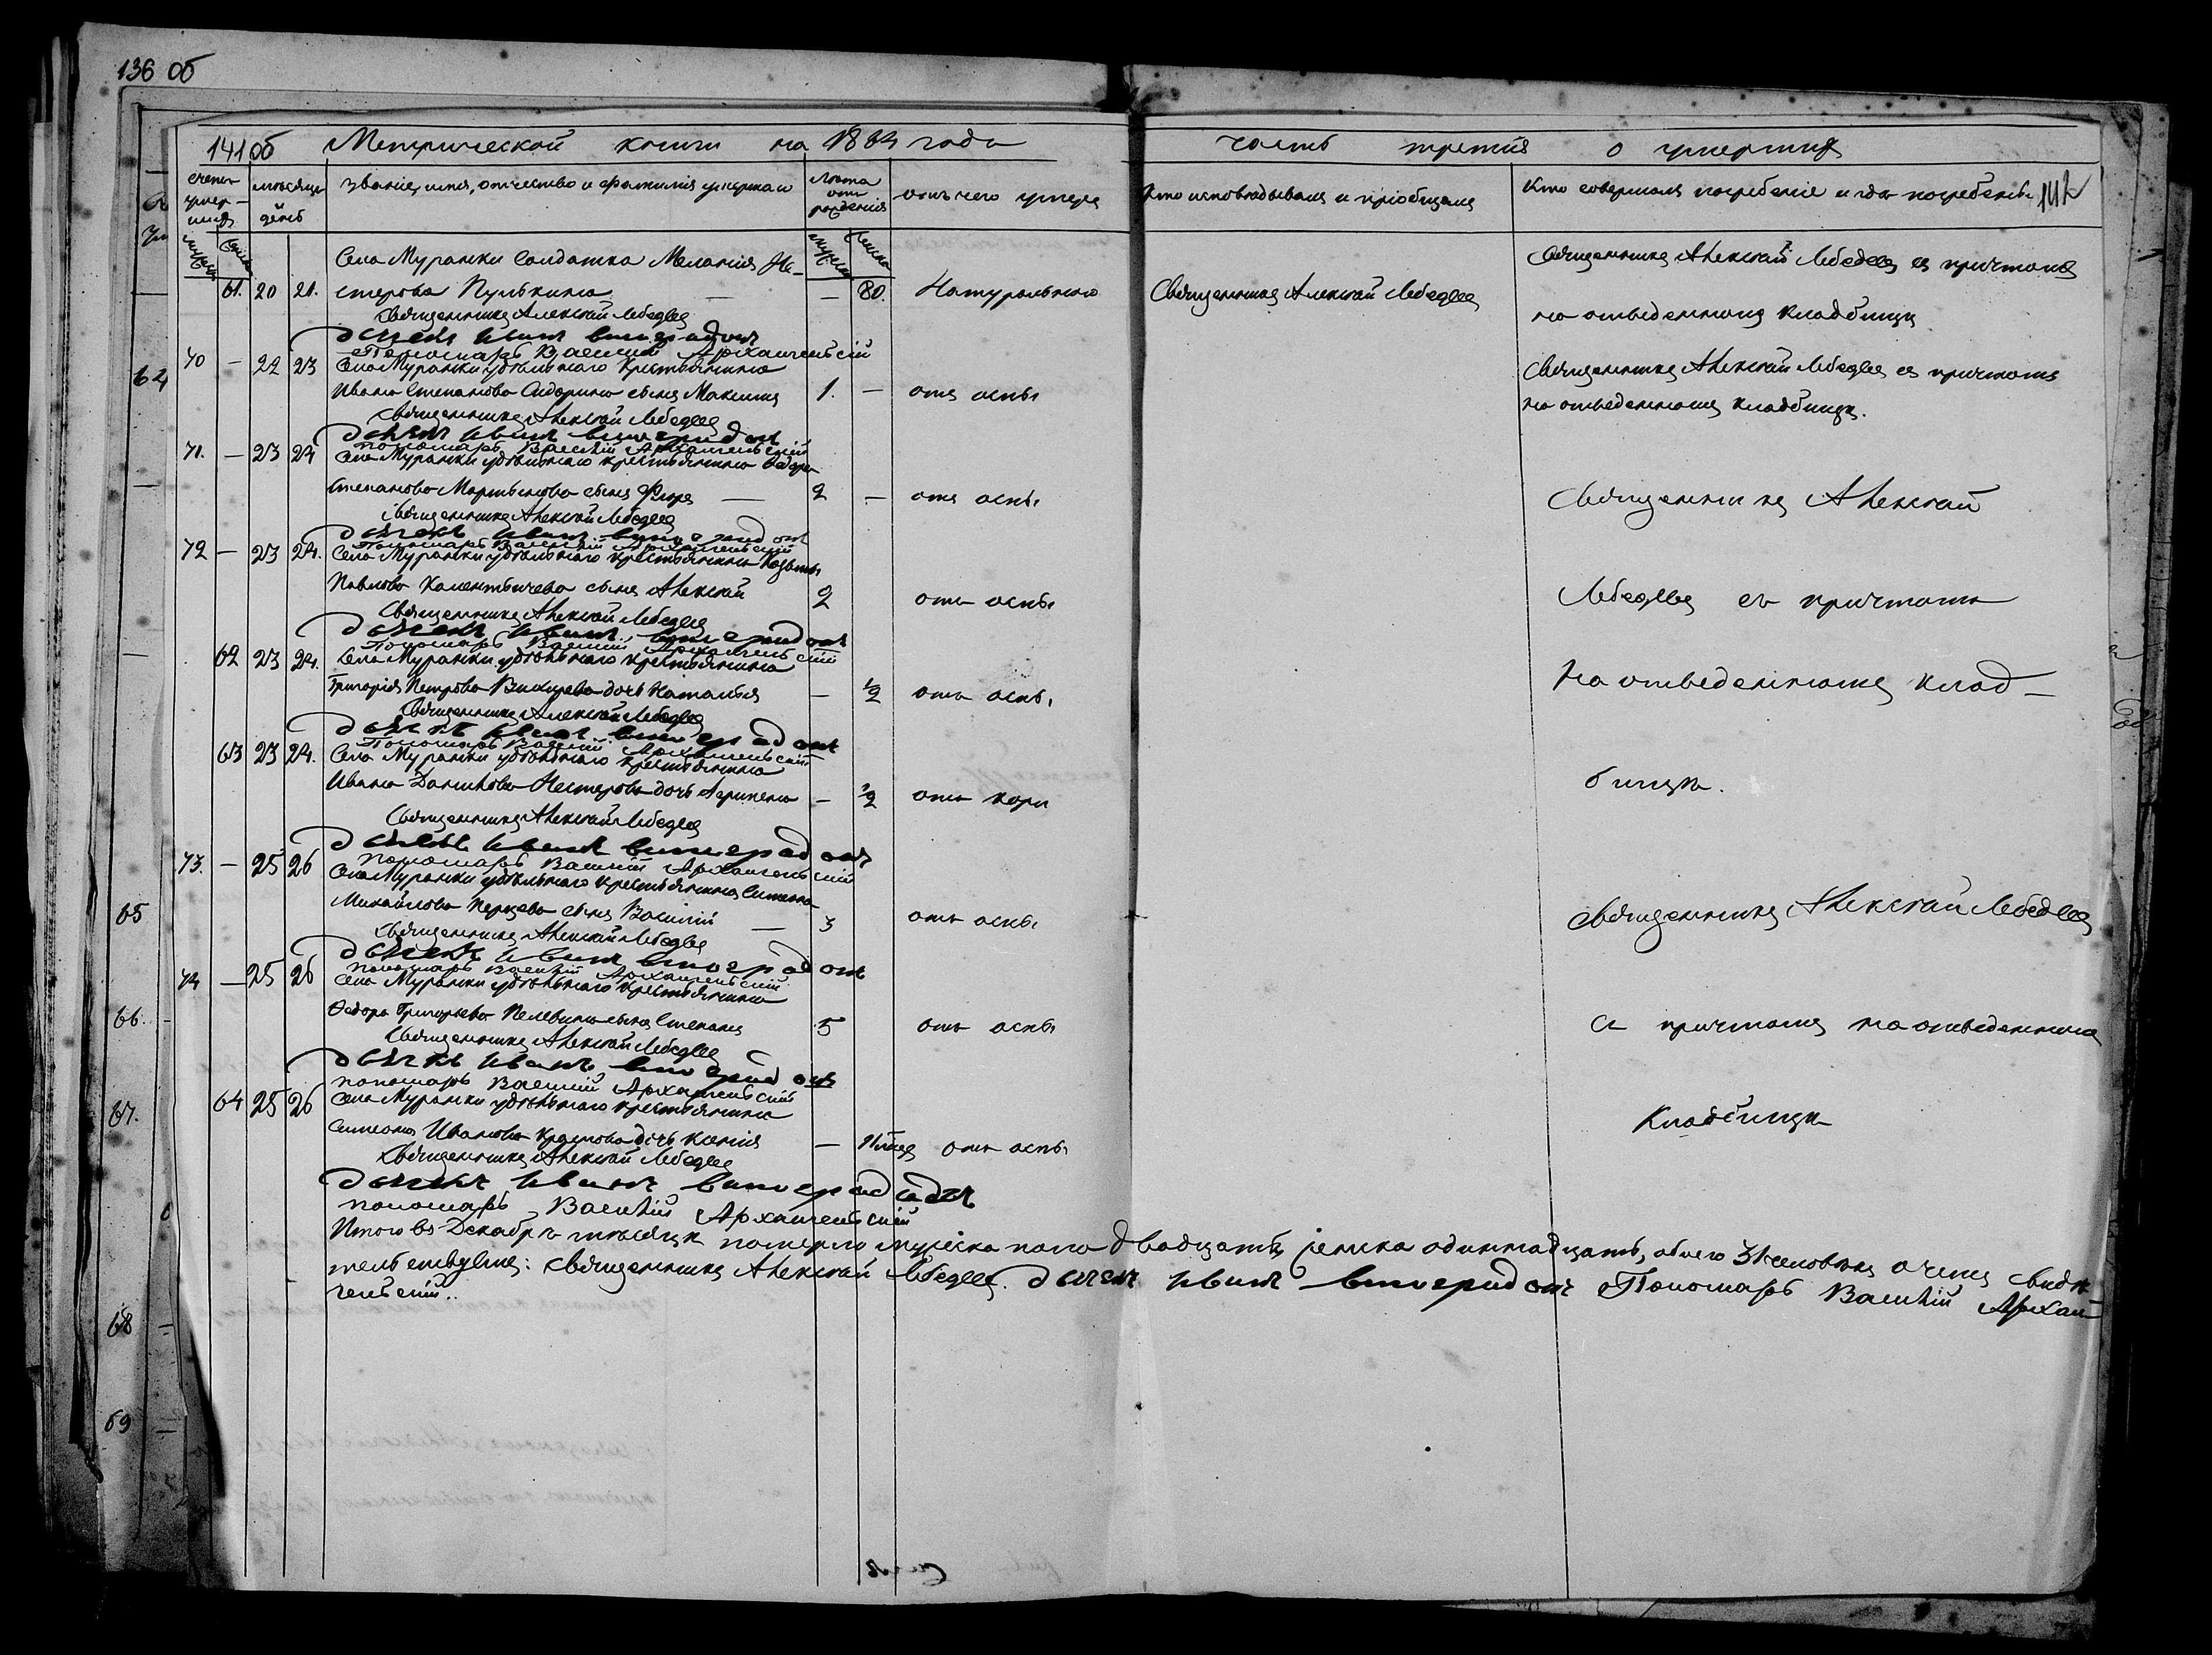 136 об
141 об Метрической книги на 1864 года часть третия о умерших
счетъ умер-ших месяцъ и день Званіе, имя, отчество и фамилія умершаго Лѣта отъ рожденія отъ чего умеръ Кто исповѣдывалъ и пріобщалъ Кто совершалъ погребеніе и гдѣ погребены 142
Села Муранки Солдатка Меланія Не- Священникъ Алексѣй Лебедевъ съ причтомъ
61. 20 21. стерова Пулькина — — 80. Натурально Священникъ Алексѣй Лебедевъ
Священникъ Алексѣй Лебедевъ на отведенномъ кладбищѣ
дьячекъ Иванъ виноградовъ
Пономарь Василій Архангельскій
70 — 22 23 Села Муранки удѣльнаго крестьянина Священникъ Алексѣй Лебедевъ съ причтомъ
62
Ивана Степанова Сидорина сынъ Максимъ 1. — отъ оспы на отведенномъ кладбищѣ.
Священникъ Алексѣй Лебедевъ
дьячекъ Иванъ виноградовъ
Пономарь Василій Архангельскій
71. — 23 24 Села Муранки удѣльнаго крестьянина Ѳедора
Степанова Мартынова сынъ — 2 — отъ оспы Священникъ Алексѣй
Священникъ Алексѣй Лебедевъ
дьячекъ Иванъ виноградовъ
Пономарь Василій Архангельскій
72 — 23 24. Села Муранки удѣльнаго крестьянина Козьмы
Павлова сынъ Алексѣй 2 отъ оспы Лебедевъ съ причтомъ
Священникъ Алексѣй Лебедевъ
дьячекъ Иванъ виноградовъ
Пономарь Василій Архангельскій
62 23 24. Села Муранки удѣльнаго крестьянина
Григорія Петрова дочь Наталья — 1/2 отъ оспы на отведенномъ клад-
Священникъ Алексѣй Лебедевъ
дьячекъ Иванъ виноградовъ
Пономарь Василій Архангельскій
63 23 24. Села Муранки удѣльнаго крестьянина
Ивана Данилова Нестерова дочь Агрипена — 1/2 отъ кори бищѣ.
Священникъ Алексѣй Лебедевъ
дьячекъ Иванъ виноградовъ
пономарь Василій Архангельскій
73. — 25 26 Села Муранки удѣльнаго крестьянина
65 Михайлова Перцева сынъ Василій — 3 отъ оспы Священникъ Алексѣй Лебедевъ
Священникъ Алексѣй Лебедевъ
дьячекъ Иванъ виноградовъ
пономарь Василій Архангельскій
74 — 25 26 Села Муранки удѣльнаго крестьянина
66. Ѳедора Григорьева Пелевина сынъ Степанъ 5 отъ оспы съ причтомъ на отведенномъ
Священникъ Алексѣй Лебедевъ
дьячекъ Иванъ виноградовъ
пономарь Василій Архангельскій
67. 64 25 26 Села Муранки удѣльнаго крестьянина кладбищѣ
Симеона Иванова дочь Ксенія — отъ оспы
Священникъ Алексѣй Лебедевъ
дьячекъ Иванъ виноградовъ
пономарь Василій Архангельскій
Итого въ Декабрѣ месяцѣ померло мужеска пола двадцать, женска одиннадцать, обоего 31 человѣкъ о чемъ свидѣ-
тельствуемъ: Священникъ Алексѣй Лебедевъ. дьячекъ Иванъ виноградовъ Пономарь Василій Архан-
гельскій..
68 —
69 —